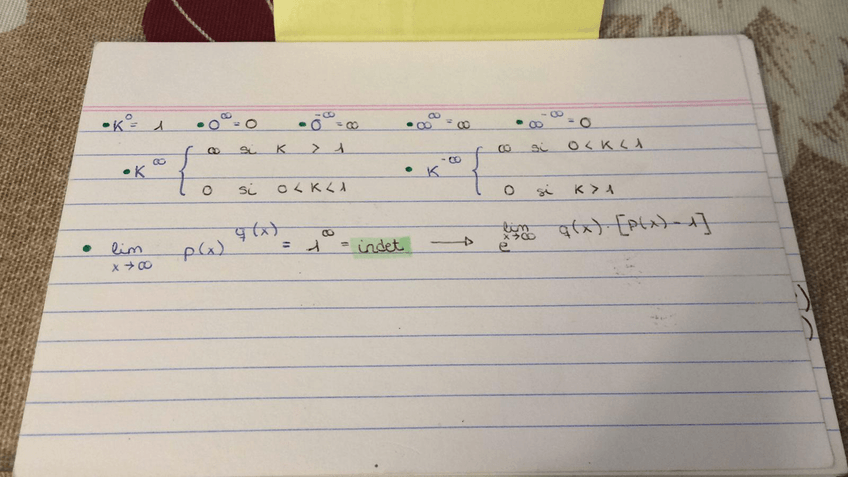 • K⁰ = 1 • 0^∞ = 0 • 0^-∞ = ∞ • ∞^∞ = ∞ • ∞^-∞ = 0
• K^∞ { ∞ si K > 1 • K^-∞ { ∞ si 0 < K < 1
0 si 0 < K < 1 0 si K > 1
• lim x→∞ p(x)^q(x) = 1^∞ = indet → e^lim x→∞ q(x) · [p(x) - 1]